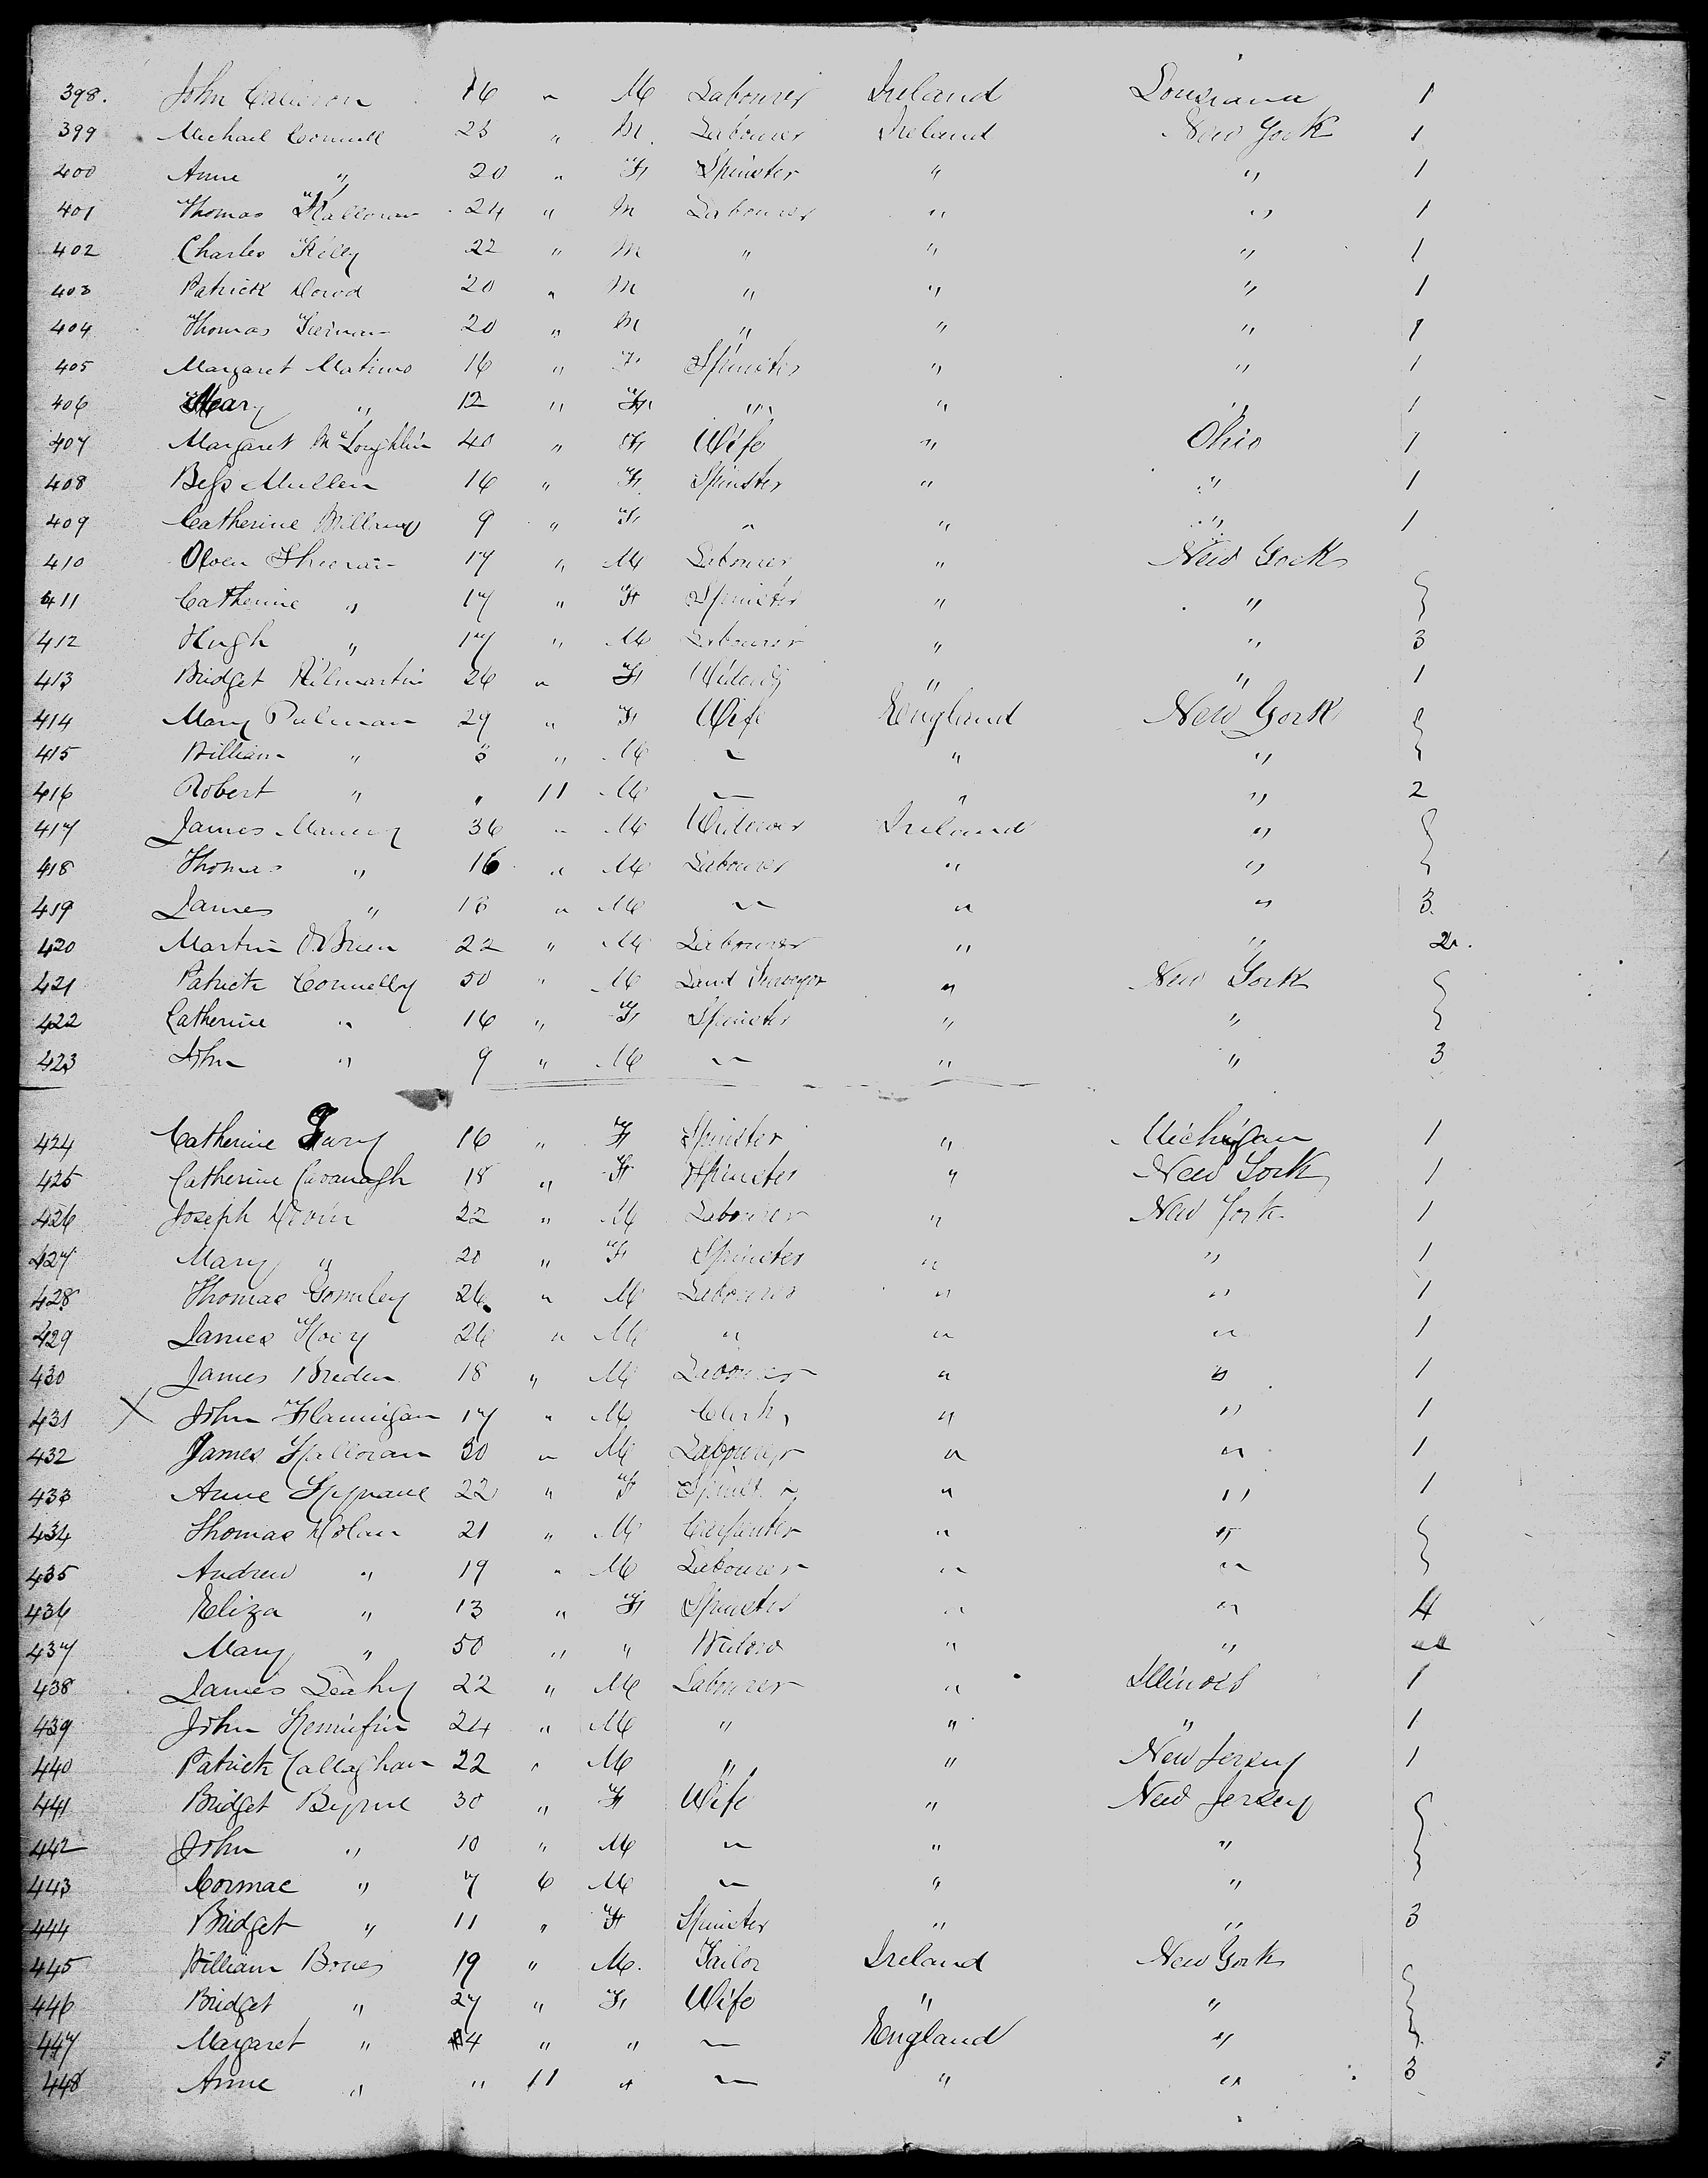 398. John 16 " M Labourer Ireland Louisiana 1
399 Michael Connell 23 " M. Labourer Ireland New York 1
400 Anne " 20 " F Spinster " " 1
401 Thomas Halloran 24 " M Labourer " " 1
402 Charles Kelly 22 " M " " " 1
403 Patrick Dowd 20 " M " " " 1
404 Thomas 20 " M " " " 1
405 Margaret Matimo 16 " F Spinster " " 1
406 Mary " 12 " F " " " 1
407 Margaret McLoughlin 40 " F Wife " Ohio 1
408 Bess Mullen 16 " F Spinster " " 1
409 Catherine 9 " F " " " 1
410 Owen 17 " M Labourer " New York
411 Catherine " 17 " F Spinster " " }
412 Hugh " 17 " M Labourer " " 3
413 Bridget Kilmartin 26 " F " " 1
414 Mary Pulman 29 " F Wife England New York
415 William " 3 " M — " " }
416 Robert " " 11 M — " " 2
417 James 36 " M Widower Ireland "
418 Thomas " 16 " M Labourer " " }
419 James " 18 " M — " " 3.
420 Martin O'Brien 22 " M Labourer " " 2.
421 Patrick Connelly 50 " M Land Surveyor " New York
422 Catherine " 16 " F Spinster " " }
423 John " 9 " M — " " 3
424 Catherine 16 " F Spinster " Michigan 1
425 Catherine Cavanagh 18 " F Spinster " New York 1
426 Joseph 22 " M Labourer " New York 1
427 Mary " 20 " F Spinster " " 1
428 Thomas Gormley 26 " M Labourer " " 1
429 James Hoey 26 " M " " " 1
430 James Breden 18 " M Labourer " " 1
431 X John Flannigan 17 " M Clerk " " 1
432 James Halloran 30 " M Labourer " " 1
433 Anne 22 " F Spinster " " 1
434 Thomas Dolan 21 " M Carpenter " "
435 Andrew " 19 " M Labourer " " }
436 Eliza " 13 " F Spinster " " 4
437 Mary " 50 " " Widow " "
438 James Leahy 22 " M Labourer " Illinois 1
439 John 24 " M " " " 1
440 Patrick Callaghan 22 " M " " New Jersey 1
441 Bridget Byrne 30 " F Wife " New Jersey
442 John " 10 " M — " " }
443 Cormac " 7 6 M — " "
444 Bridget " 11 " F Spinster " " 3
445 William 19 " M. Tailor Ireland New York
446 Bridget " 27 " F Wife " " }
447 Margaret " 4 " " — England "
448 Anne " " 11 " — " " 3